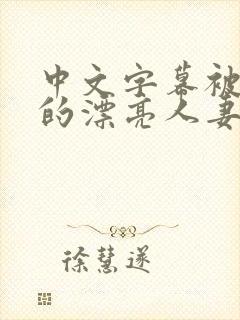 中文字幕被
的漂亮人妻
徐慧遂